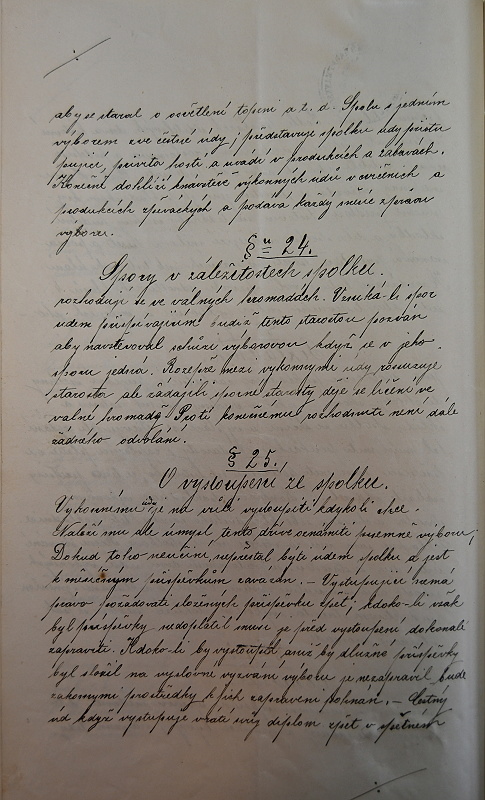 aby se staral o osvětlení topení a t. d. Spolu s jedním
výborem zve čestné údy; představuje spolku údy přistu
pující, přivítá hosti a uvádí v produkcích a zábavách.
Konečně dohlíží k návštěvě výkonných údů v cvičeních a
produkcích zpěváckých a podává každý měsíc zprávu
výboru.
§ 24.
Spory v záležitostech spolku.
rozhodují se ve válných hromadách. Vzniká-li spor
údem přispívajícím budiž tento starostou pozván
aby navštěvoval schůze výborovou když se v jeho
sporu jedná. Rozepře mezi výkonnými údy rozsuzuje
starosta ale žádajíli sporné starosty děje se líčení ve
valné hromadě. Proti konečnému rozhodnutí není dále
žádného odvolání.
§ 25.
O vystoupení ze spolku.
Výkonnému údu je na vůli vystoupiti kdykoli chce.
Náleží mu ale úmysl tento dříve oznámiti písemně výboru;
Dokud toho neučiní, nepřestal býti údem spolku a jest
k měsíčným příspěvkům zavázán. – Vystupující nemá
právo požadovati složených příspěvku zpět; kdoko-li však
byl příspěvky nedoplatil musí je před vystoupení dokonale
zapraviti. Kdoko-li by vystoupil aniž by dlužné příspěvky
byl složil na výslovné vyzvání výboru je nezapravil bude
zákonnými prostředky k jich zapravení pohnán. – Čestný
úd když vystupuje vrátí svůj diplom zpět v